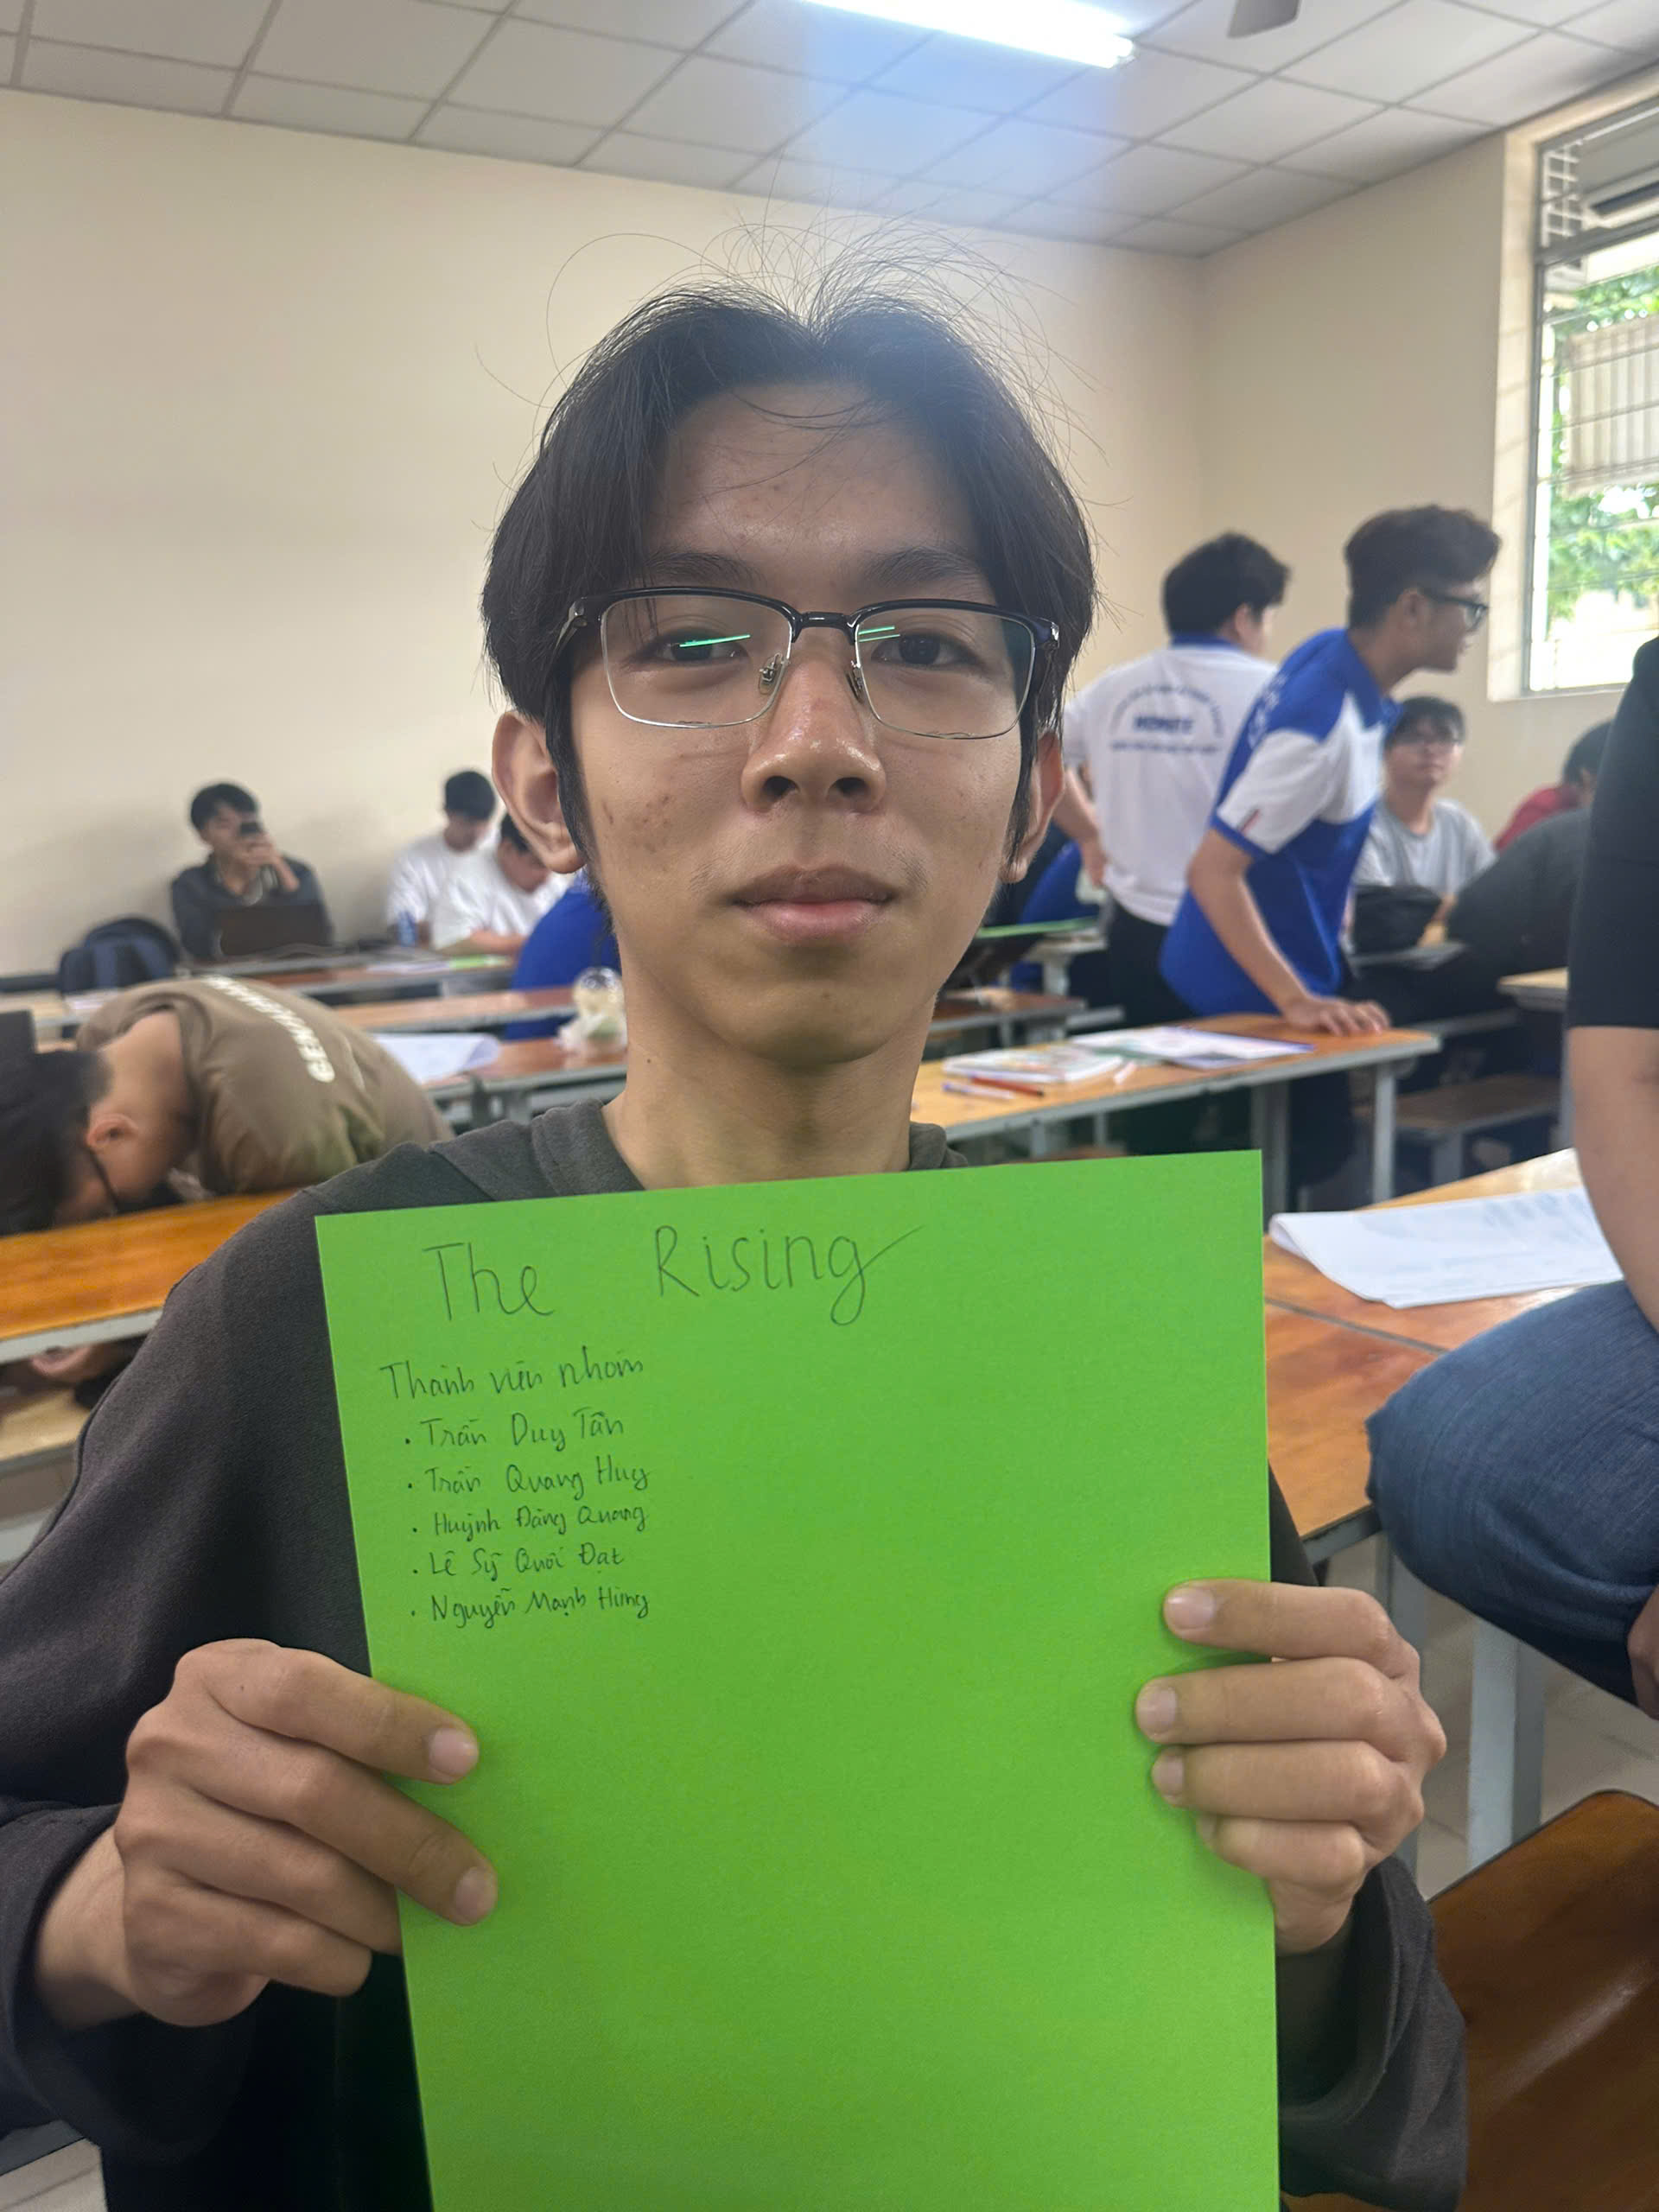 The Rising
Thành viên nhóm
• Trần Duy Tân
• Trần Quang Huy
• Huỳnh Đăng Quang
• Lê Sỹ Quôí Đạt
• Nguyễn Mạnh Hùng